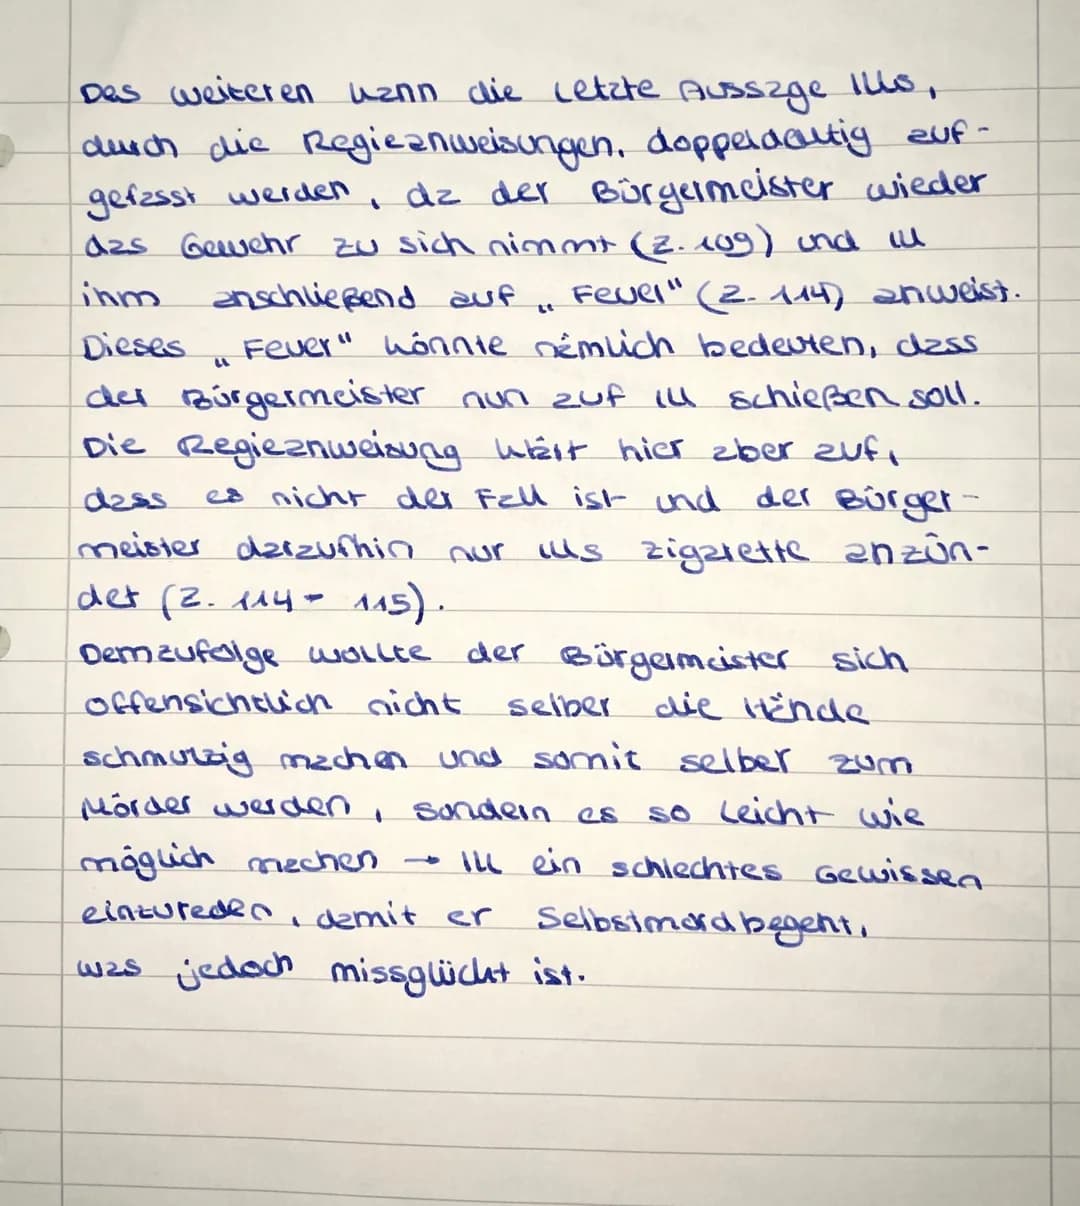 Des weiteren kann die letzte Aussage Ills,
durch die Regieanweisungen, doppeldeutig auf-
gefasst werden, da der Bürgermeister wieder
das Gewehr zu sich nimmt (Z. 109) und Ill
ihm anschließend auf „Feuer" (Z. 114) anweist.
Dieses „Feuer" könnte nämlich bedeuten, dass
der Bürgermeister nun auf Ill schießen soll.
Die Regieanweisung klärt hier aber auf,
dass es nicht der Fall ist und der Bürger-
meister daraufhin nur Ills Zigarette anzün-
det (Z. 114 - 115).
Demzufolge wollte der Bürgermeister sich
offensichtlich nicht selber die Hände
schmutzig machen und somit selber zum
Mörder werden, sondern es so leicht wie
möglich machen → Ill ein schlechtes Gewissen
einzureden, damit er Selbstmord begeht,
was jedoch missglückt ist.